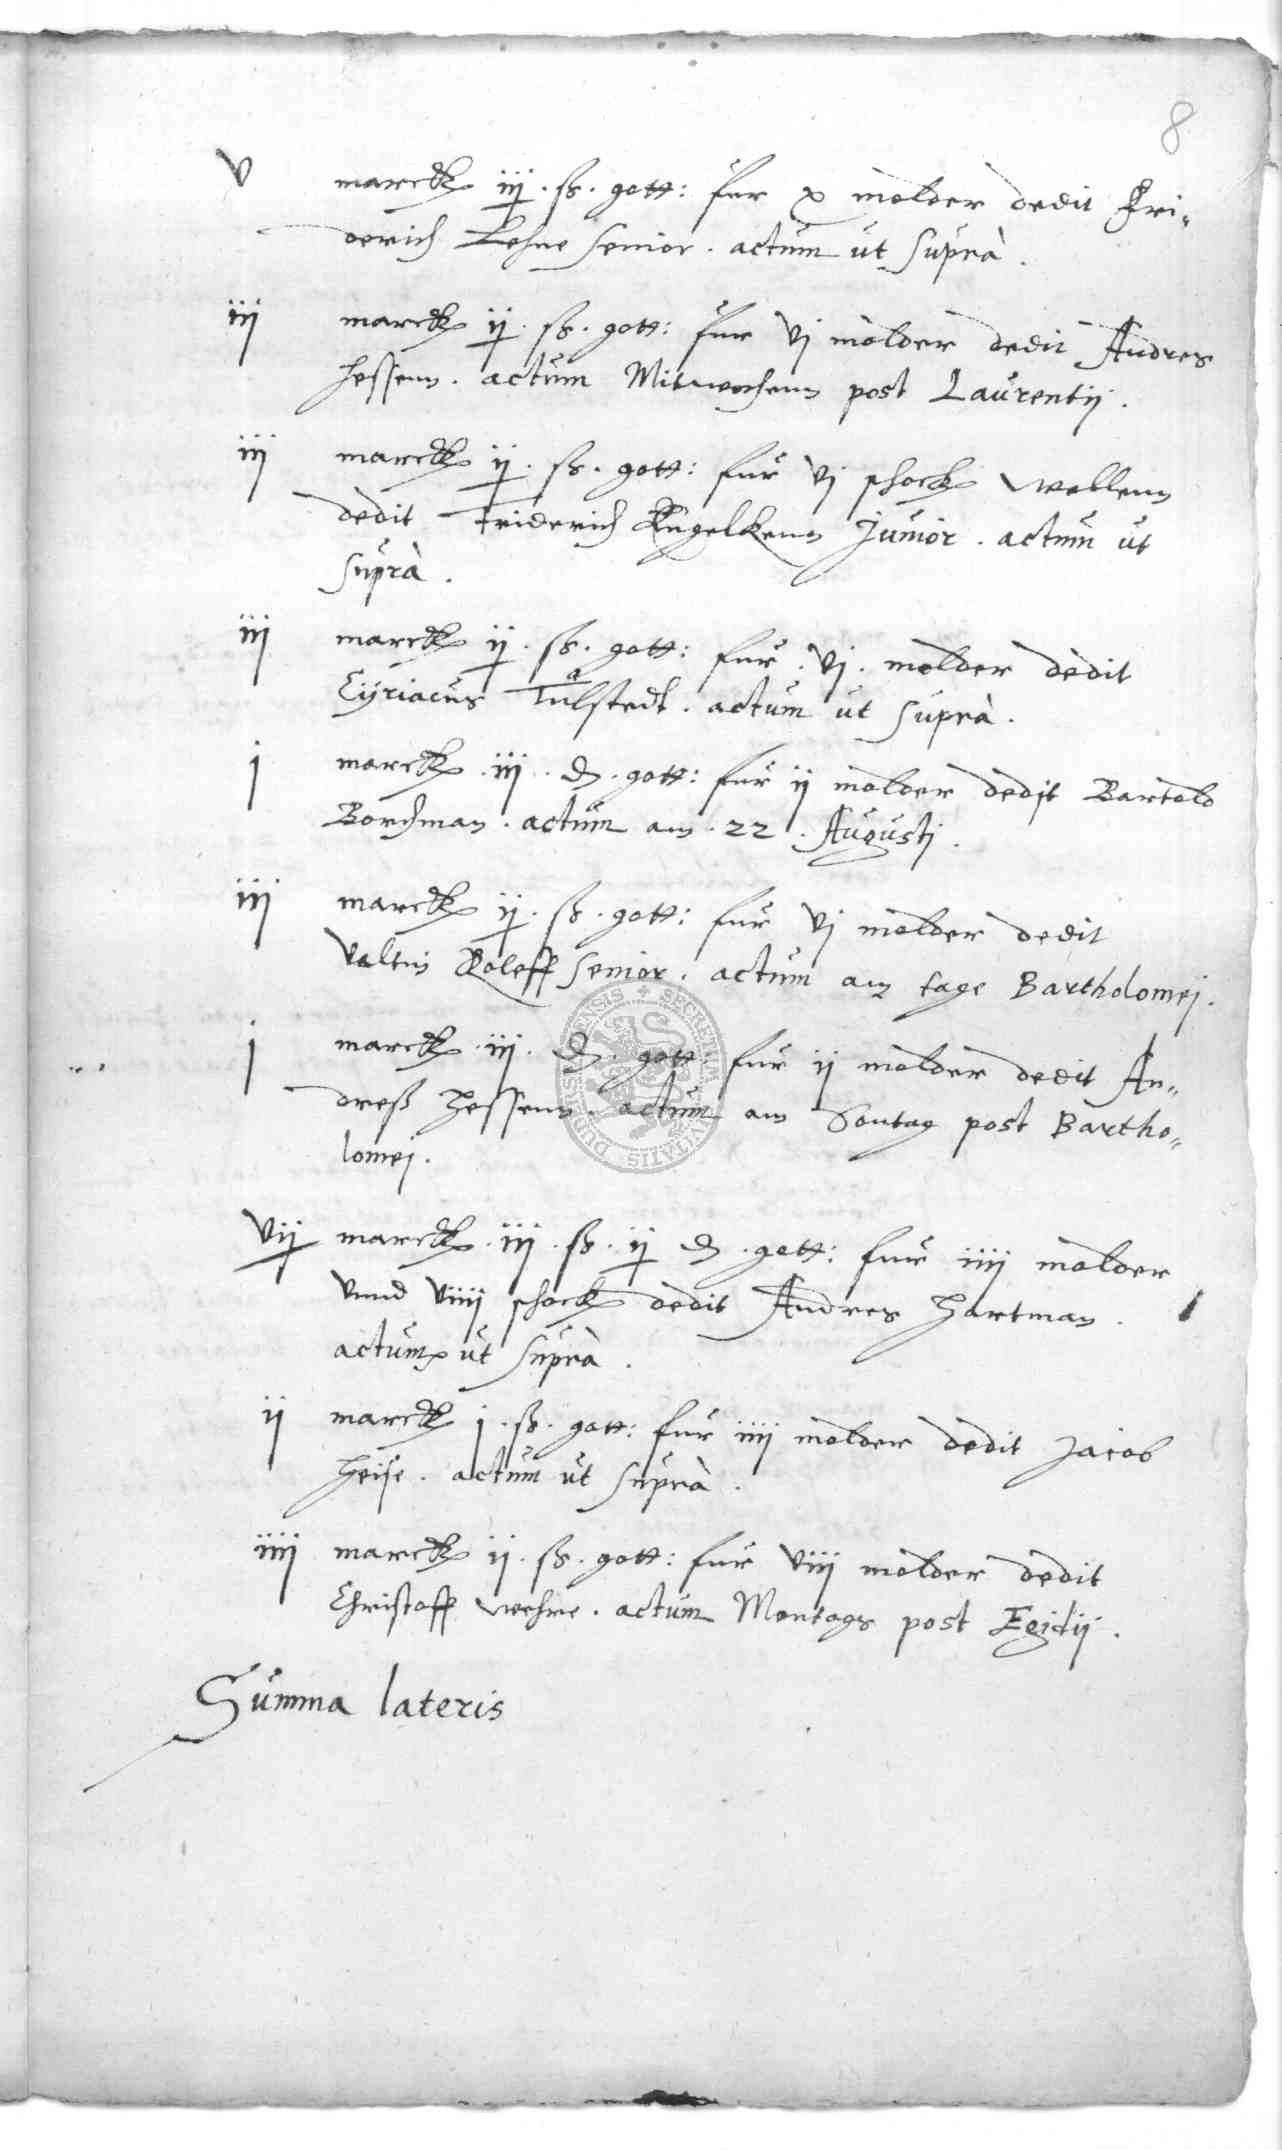 8
v marck iij . ß . gott: fur x molder dedit Fri-
derich Lesne senior . actum ut suprà .
iij marck ij . ß . gott: fur vj molder dedit Andres
Hessenn . actum Mitwochenn post Laurentij .
iij marck ij . ß . gott: fur vj schock wellenn
dedit Friderich Kugelkenn Junior . actum ut
suprà .
iij marck ij . ß . gott: fur . vj . molder dedit
Cyriacus Tulstedt . actum ut suprà .
j marck . iij . d . gott: fur ij molder dedit Bartold
Borchman . actum am . 22 . Augusti .
iij marck ij . ß . gott: fur vj molder dedit
Valtin Roleff senior . actum am tage Bartholomej .
j marck . iij . d . gott: fur ij molder dedit An-
dreß Hessenn . actum am Sontag post Bartho-
lomej .
vij marck . iij . ß . ij d . gott: fur iiij molder
vnnd viiij schock dedit Andres Hartman .
actum ut suprà .
ij marck j . ß . gott: fur iiij molder dedit Jacob
Heise . actum ut suprà .
iiij marck ij . ß . gott: fur viij molder dedit
Christoff wehre . actum Montags post Egidij .
Summa lateris
SECRETUM CIVITATIS DUDERSTADENSIS